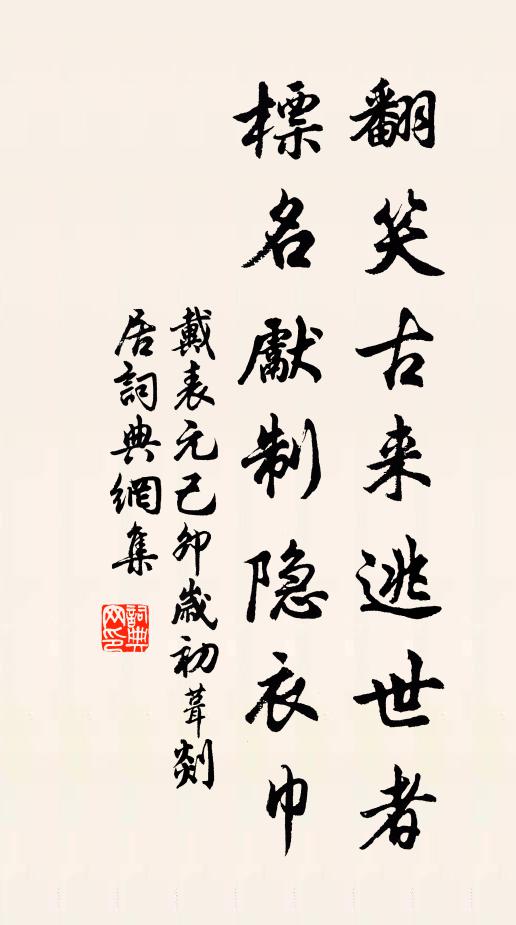 翻笑古来逃世者
標名獻制隐衣巾
戴表元己卯歲初葺剡
居詞典網集
詞典网印